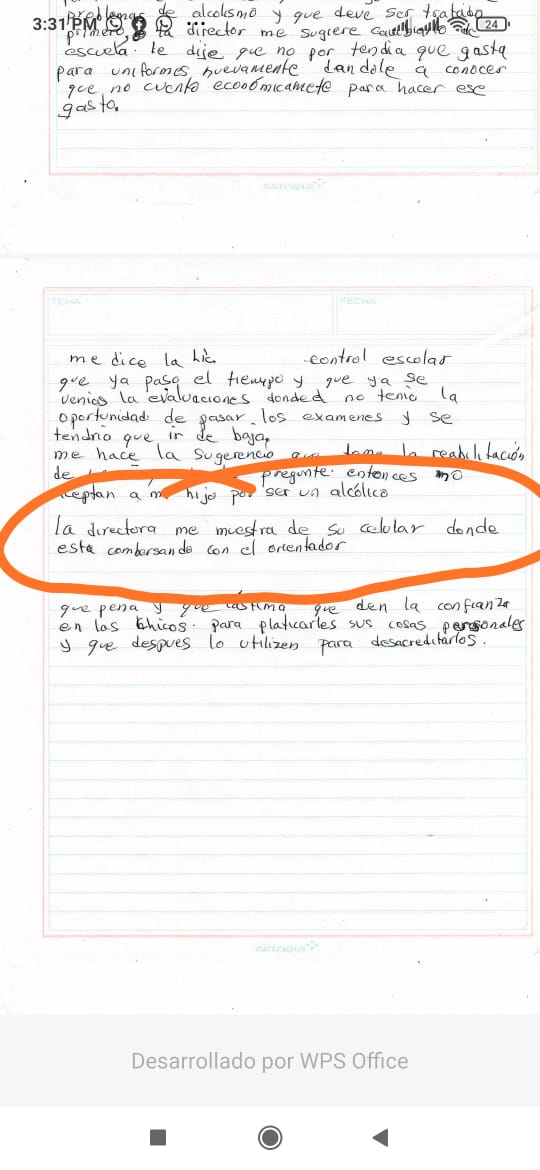 problemas de alcolismo y que deve ser tratado
3:31 PM 24
primero, y la director me sugiere de
escuela. le dije que no por tendia que gasta
para uniformes nuevamente dandole a conocer
que no cuento económicamete para hacer ese
gasto.
estrella
TEMA FECHA
me dice la Lic. control escolar
que ya paso el tiempo y que ya se
venias la evaluaciones donded no tenia la
oportunidad de pasar los examenes y se
tendria que ir de baja,
me hace la sugerencia que tome la reabilitación
de pregunte entonces no
aceptan a mi hijo por ser un alcólico
la directora me muestra de su celular donde
esta combersando con el orientador
que pena y que lástima que den la confianza
en los chicos. para platicarles sus cosas personales
y que despues lo utilizen para desacreditarlos.
estrella
Desarrollado por WPS Office